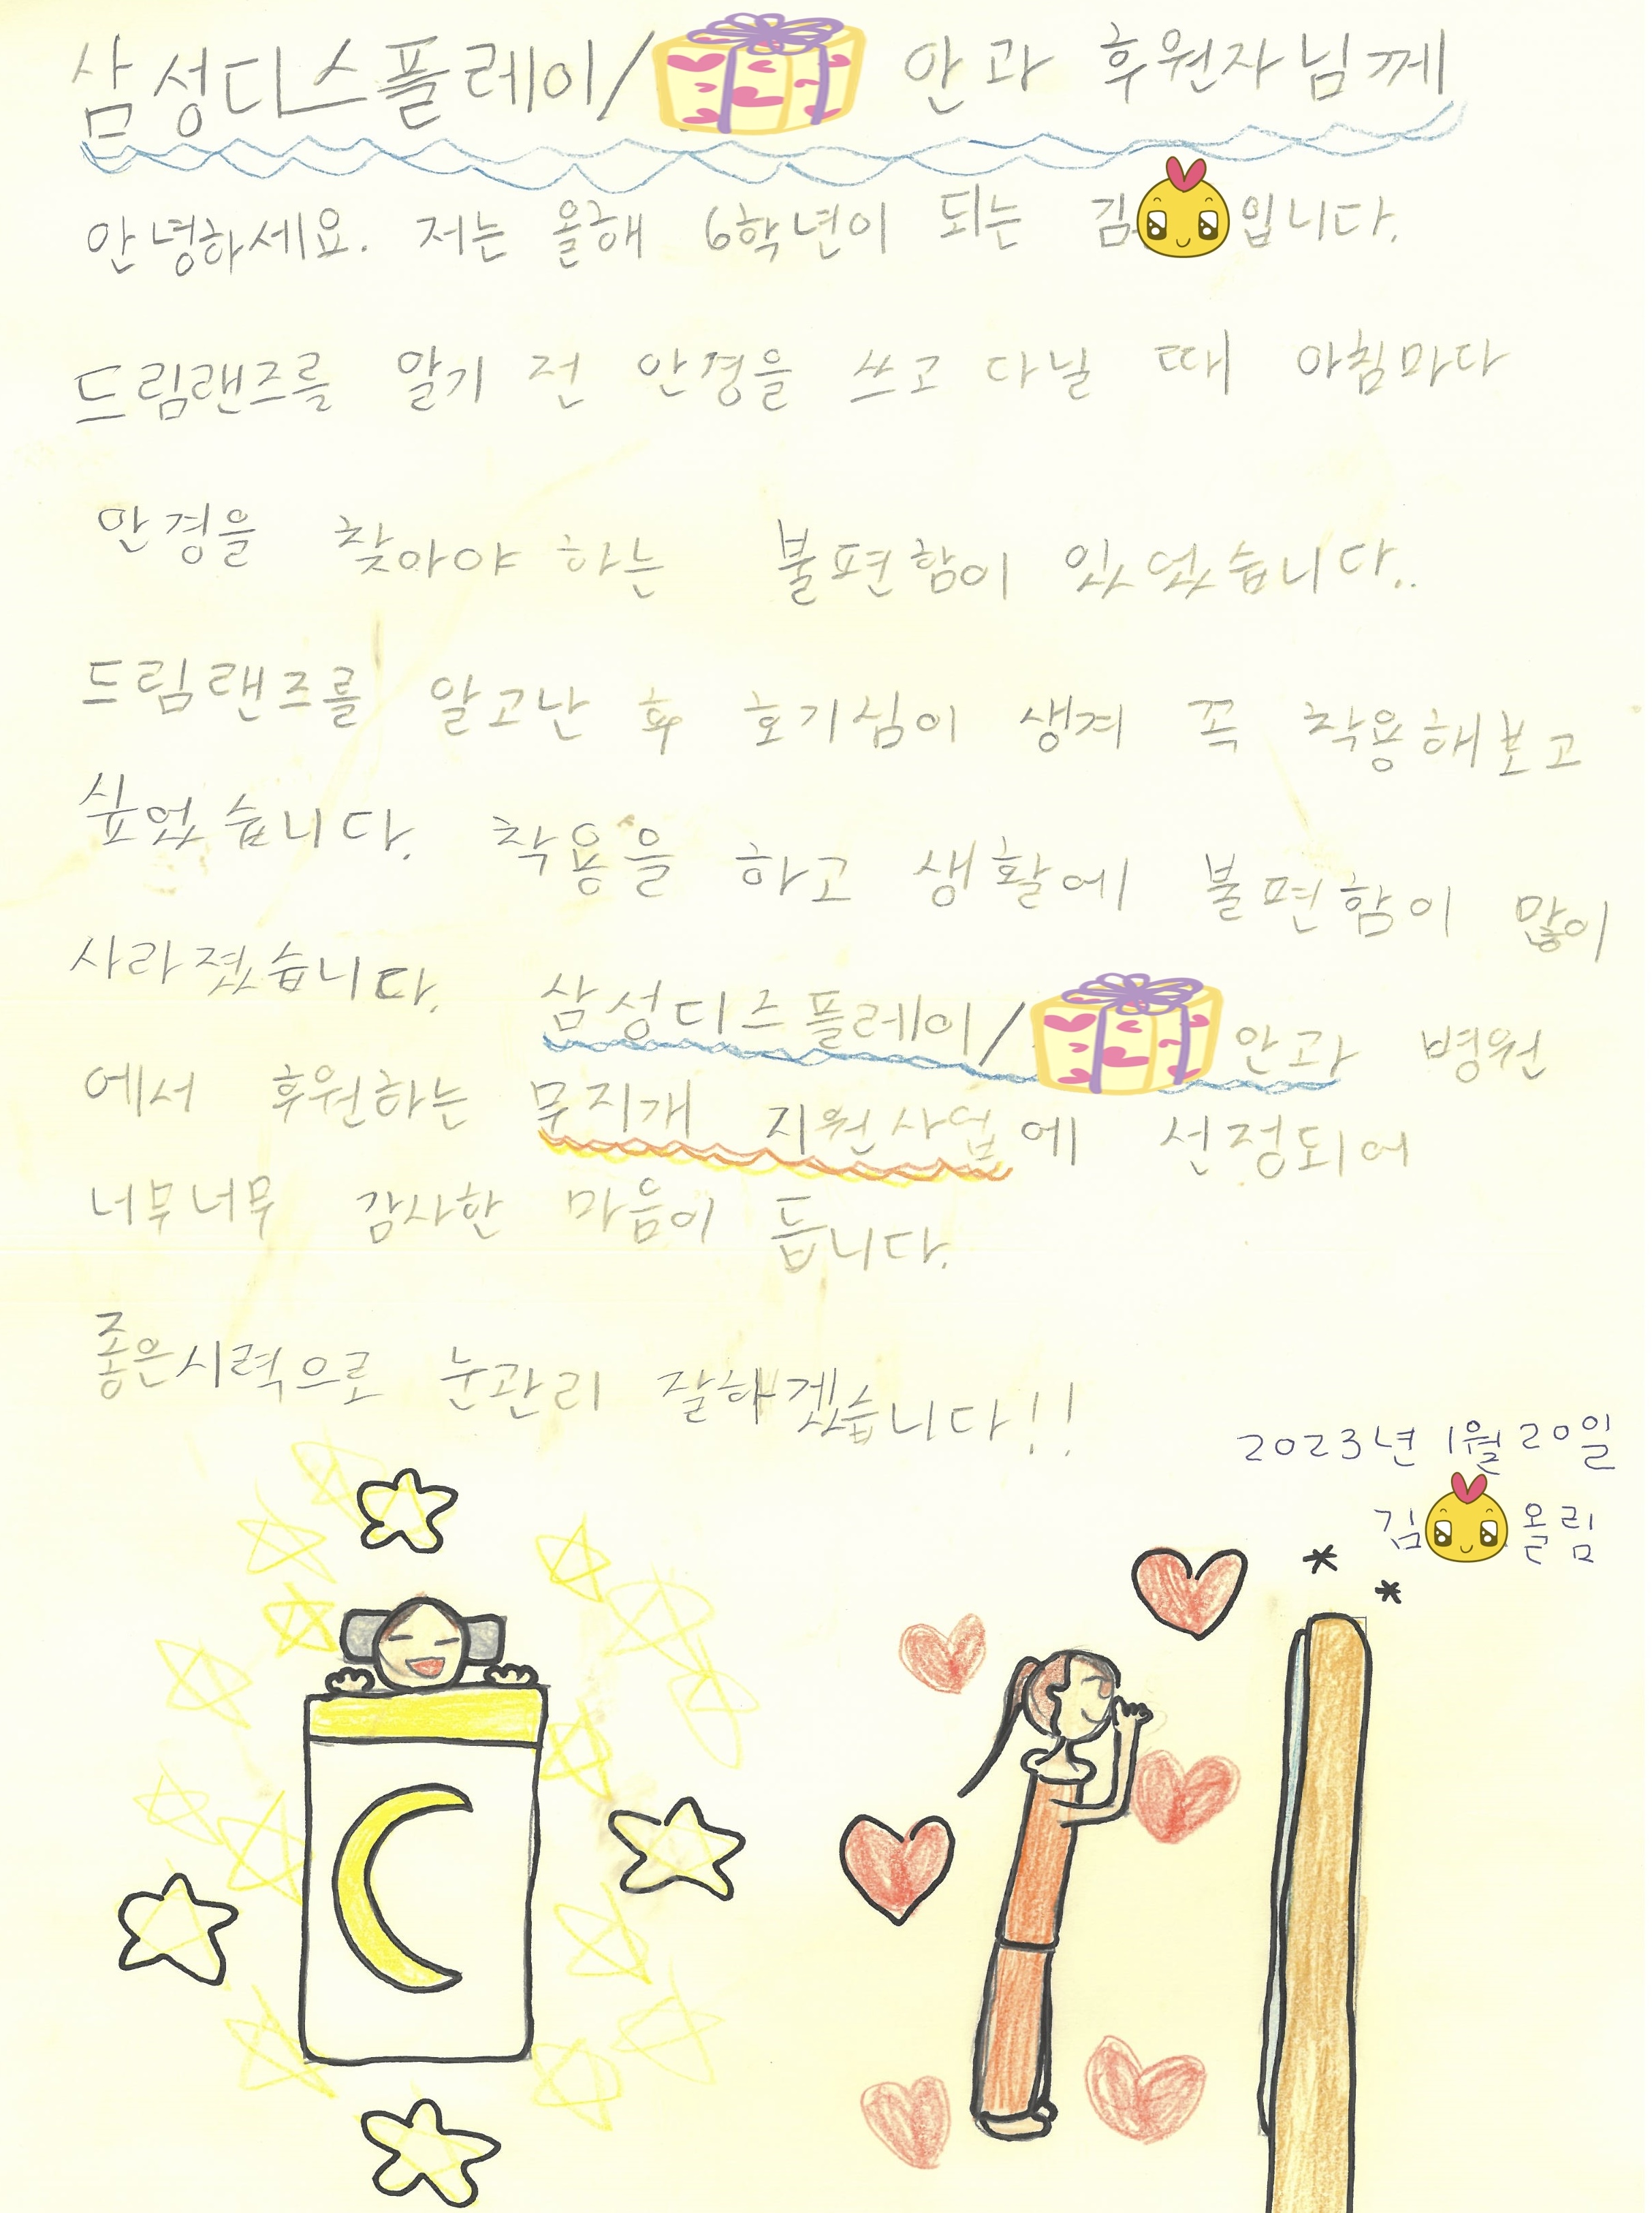 삼성디스플레이/ 안과 후원자님께
안녕하세요. 저는 올해 6학년이 되는 김 입니다.
드림랜즈를 알기 전 안경을 쓰고 다닐 때 아침마다
안경을 찾아야 하는 불편함이 있었습니다..
드림랜즈를 알고난 후 호기심이 생겨 꼭 착용해보고
싶었습니다. 착용을 하고 생활에 불편함이 많이
사라졌습니다. 삼성디즈플레이/ 안과 병원
에서 후원하는 무지개 지원사업에 선정되어
너무너무 감사한 마음이 듭니다.
좋은시력으로 눈관리 잘하겠습니다!!
2023년 1월 20일
김 올림